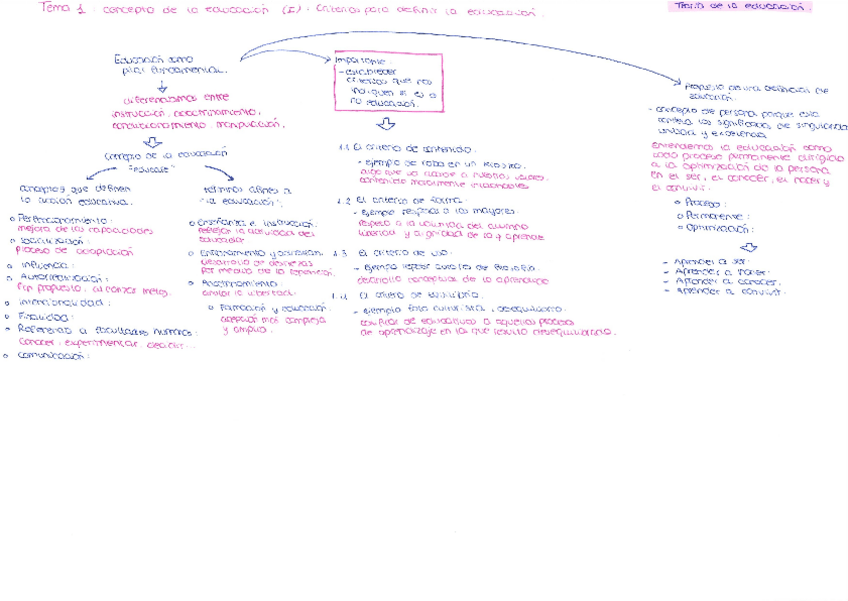 Tema 1: concepto de la educación (I): Criterios para definir la educación.
Teoría de la educación.
Educación como
pilar fundamental.
diferenciamos entre
instrucción, adoctrinamiento,
condicionamiento, manipulación.
Concepto de la educación
"educare"
conceptos que definen
la acción educativa.
Perfeccionamiento:
mejora de las capacidades
Socialización:
proceso de adaptación
Influencia:
Autorrealización:
Fin propuesto, alcanzar metas.
Intencionalidad:
Finalidad:
Referencia a facultades humanas:
Conocer, experimentar, decidir...
Comunicación:
términos afines a
"la educación":
Enseñanza e instrucción:
reflejar la actividad del
educador
Entrenamiento y
desarrollo de destrezas
por medio de la repetición.
Adoctrinamiento
anular la libertad.
Formación y educación:
acepción más compleja
y amplia.
Importante
- establecer
criterios que nos
indiquen si es o
no educación.
1.1 El criterio de contenido.
- Ejemplo de robo en un
algo que va
contenido moralmente
1.2 El criterio de forma.
- Ejemplo respeto a los mayores
respeto a la voluntad del alumno
libertad y dignidad de los q aprende
1.3 El criterio de uso.
- Ejemplo
desarrollo conceptual de lo aprendido
1.4 El criterio de equilibrio.
- Ejemplo, desequilibrado.
calificar de educativos a aquellos procesos
de aprendizaje en la que resulte desequilibrado.
Propuesta de una definición de
educación.
- concepto de persona porque esta
conlleva los significados de singularidad
unitaria y
Entendemos la educación como
todo proceso permanente dirigido
a la optimización de la persona
en el ser, el conocer, el hacer y
el convivir.
Proceso:
Permanente:
Optimización:
- Aprender a ser.
- Aprender a hacer.
- Aprender a conocer.
- Aprender a convivir.